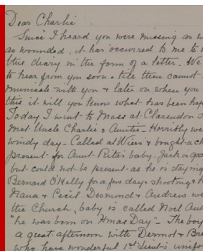 Dear Charlie
Since I heard you were missing an w
as wounded. it has occurred to me to w
this diary in the form of a letter. We
to hear from you soon & till then cannot
municate with you & later on when you
this it will you know what has been hap
Today I went to Mass at Clarendon S
met Uncle Charlie & Auntie. Horribly we
windy day - Called at Wiers & bought a ch
present for Aunt Peter baby. Jack a goo
but could not be present as he is stayin
Bernard O'Kelly for a few days shooting & h
Nana & Cecil Desmond & Andrew wer
the Church, baby is called Noel Aus
"he was born on Xmas Day" - The boys
a great afternoon with Dermot & Bre
who have wonderful 1st Lieut's unifor